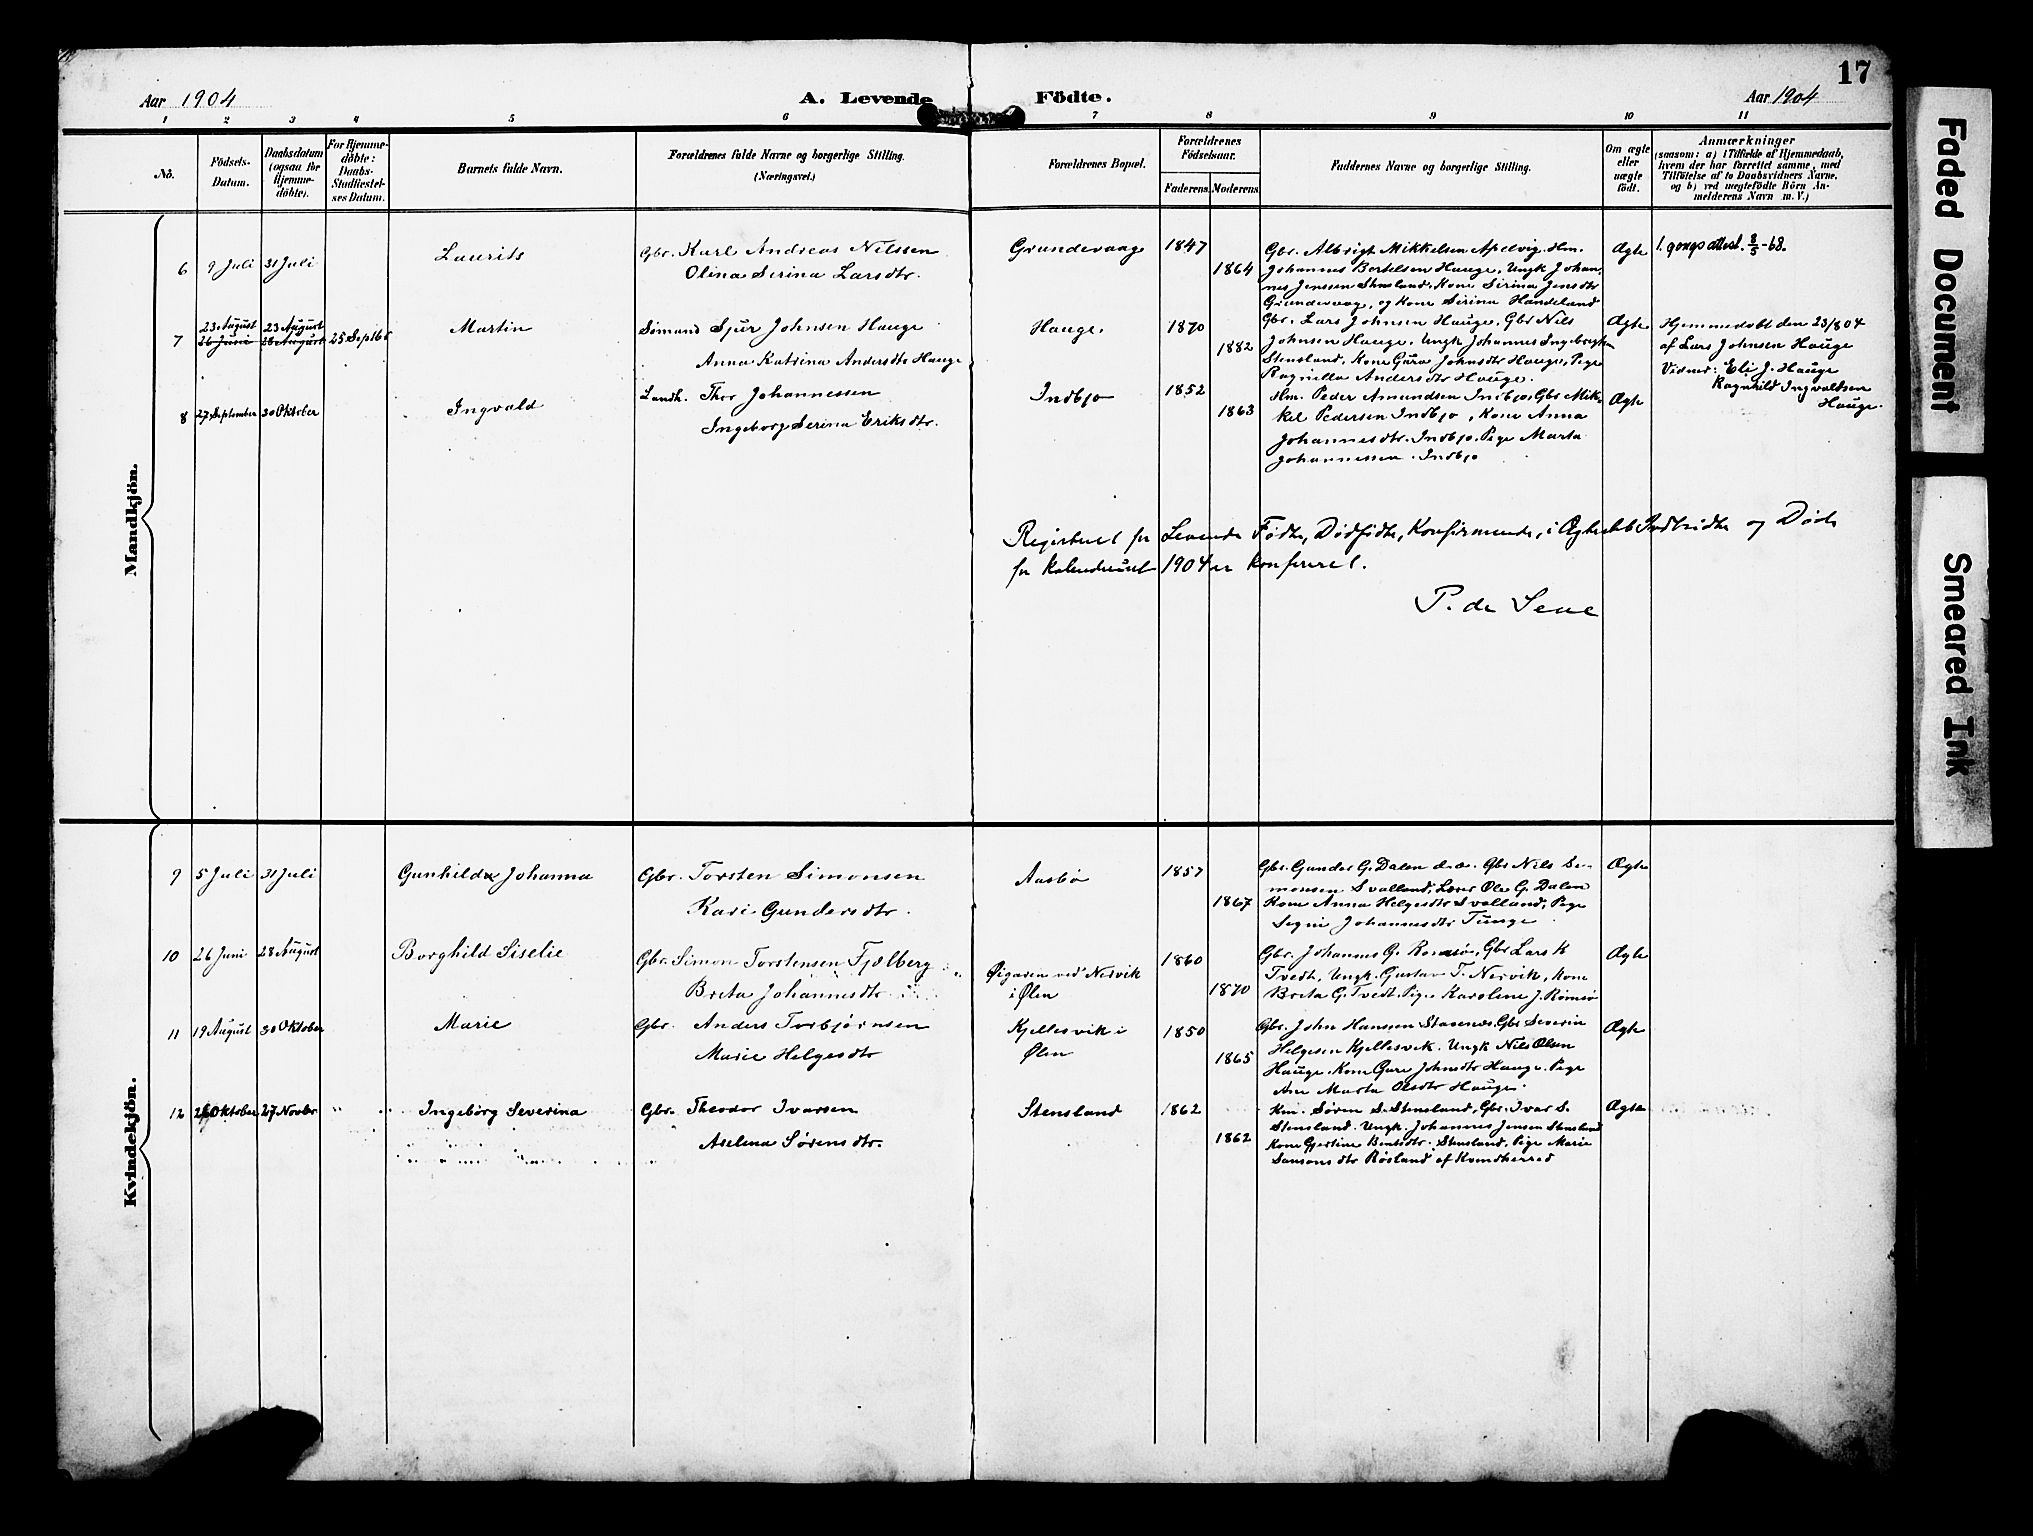 17
Aar 1904
A. Levende Födte.
Aar 1904
1 2 3 4 5 6 7 8 9 10 11
No.
Födsels-Datum.
Daabsdatum (ogsaa for Hjemme-döbte).
For Hjemme-döbte: Daabs-Stadfæstel-ses Datum.
Barnets fulde Navn.
Forældrenes fulde Navne og borgerlige Stilling.
(Næringsvei.)
Forældrenes Bopæl.
Forældrenes Födselsaar.
Faderens. Moderens.
Faddernes Navne og borgerlige Stilling.
Om ægte eller uægte födt.
Anmærkninger
(saasom: a) i Tilfælde af Hjemmedaab,
hvem der har forrettet samme, med
Tilföielse af to Daabsvidners Navne,
og b) ved uægtefödte Börn An-
melderens Navn m. V.)
Mandkjön.
6 9 Juli 31 Juli Laurits Gbr. Karl Andreas Nilssen
Olina Serina Larsdtr.
Grundevaag 1847 1864
Gbr. Albrigt Mikkelsen Apelvig. Hm.
Johannes Bertelsen Hauge, Ungk Johan-
nes Jenssen Stensland, Kone Sirina Jensdtr
Grundevaag, og Kone Sirina Handeland
Ægte
1. gongs attest. 8/5-68.
7 23 August 26 Juni 23 August 28 August 25 Septbr Martin Sömand Sjur Johnsen Hauge
Anna Katrina Andersdtr Hauge
Hauge. 1870 1882
Gbr. Lars Johnsen Hauge. Gbr Nils
Johnsen Hauge. Ungk Johannes Ingebrigtsen
Stensland, Kone Guro Johnsdtr Hauge, Pige
Ragnilla Andersdtr Hauge.
Ægte
Hjemmedøbt den 23/8 04
af Lars Johnsen Hauge
Vidner: Eli J. Hauge
Ragnhild Ingvaldsen
Hauge.
8 27 September 30 Oktober Ingvald Landh. Thor Johannessen
Ingeborg Serina Eriksdtr.
Indbjo 1852 1863
Hm. Peder Amundsen Indbjo, Gbr Mik-
kel Pedersen Indbjo, Kone Anna
Johannesdtr. Indbjo. Pige Marta
Johannessen. Indbjo
Ægte
Registeret for Levende Fødte, Dødfødte, Konfirmerede, i Ægteskab Indtrådte og Døde
for Kalenderaaret 1904 er konfereret.
P. de Seue
Kvindekjön.
9 5 Juli 31 Juli Gunhilda Johanna Gbr. Torsten Simonsen
Kari Gundersdtr.
Aasbø 1857 1867
Gbr. Gunder G. Dalen d.æ. Gbr Nils Si-
monsen Svalland, Lærer Ole G. Dalen
Kone Anna Helgesdtr Svalland, Pige
Segni Johannesdtr Tunge
Ægte
10 26 Juni 28 August Borghild Siselie Gbr. Simon Torstensen Fjælberg
Brita Johannesdtr
Øigarden ved Nervik
i Ølen
1860 1870
Gbr. Johannes G. Romsø, Gbr Lars K
Tvedt, Ungk. Gustav T. Nervik, Kone
Brita G. Tvedt. Pige Karoline J. Rømsø
Ægte
11 19 August 30 Oktober Marie Gbr. Anders Torbjørnsen
Marie Helgesdtr
Kjellesvik i
Ølen
1850 1865
Gbr. John Hansen Stavenæs, Gbr Severin
Helgesen Kjellesvik. Ungk Nils Olsen
Hauge. Kone Guro Johnsdtr Hauge. Pige
Ane Marta Olsdtr Hauge.
Ægte
12 Oktober 27 Novbr Ingebørg Severina Gbr. Theodor Ivarsen
Aselina Sørensdtr.
Stensland 1862 1862
Km. Søren S. Stensland, Gbr. Ivar S.
Stensland. Ungk. Johannes Jensen Stensland
Kone Gjertine Bentsdtr. Stensland, Pige Marie
Samsonsdtr Røsland af Kvindherred
Ægte
Faded Document
Smeared Ink